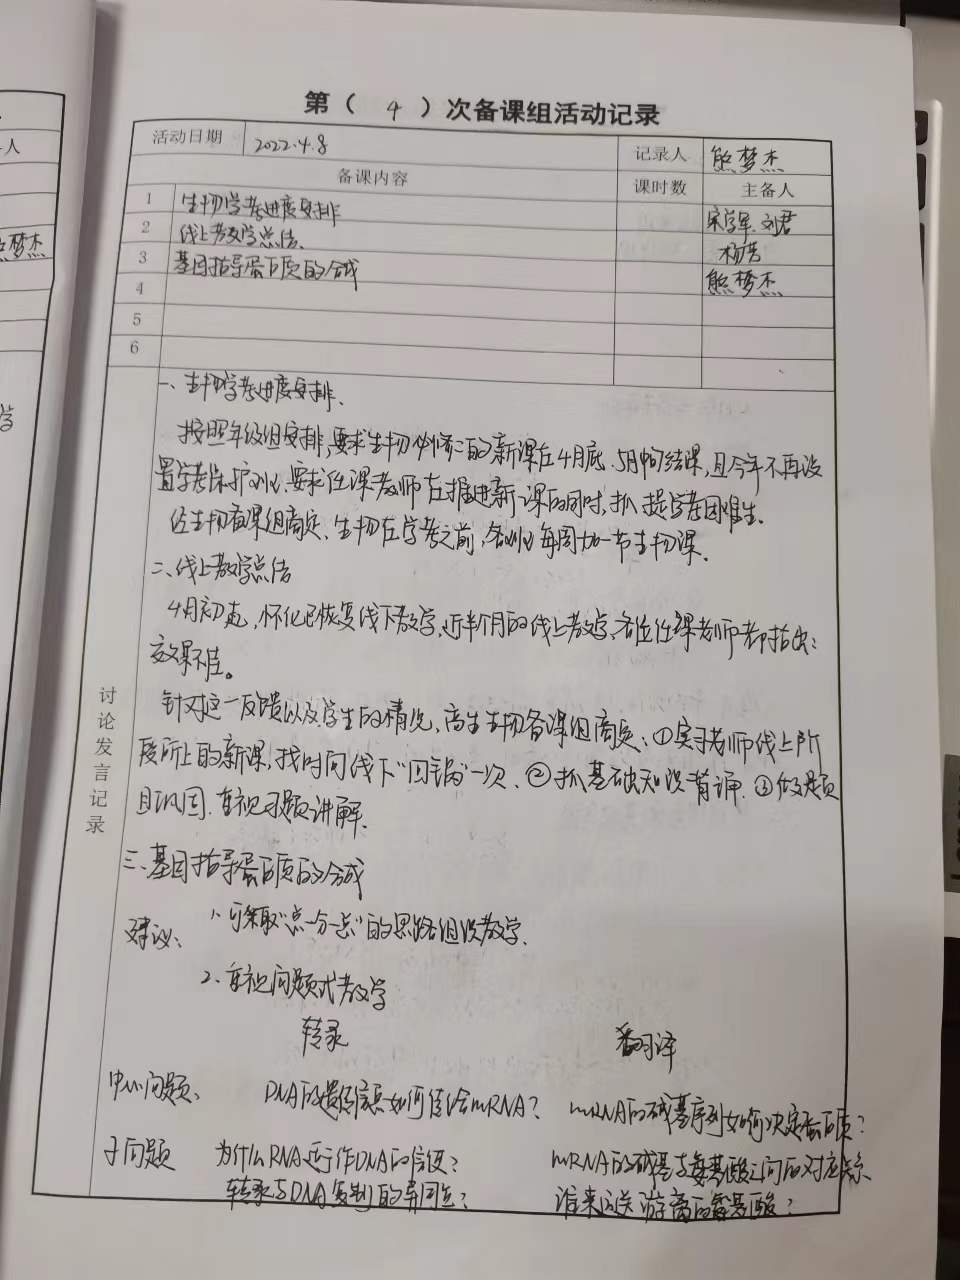 第（ 4 ）次备课组活动记录
活动日期 2022.4.8 记录人 熊梦杰
备课内容 课时数 主备人
1 生物学考进度安排 宋学军、刘君
2 线上教学总结、 杨芳
3 基因指导蛋白质的合成 熊梦杰
4
5
6
讨论发言记录
一、生物学考进度安排、
按照年级组安排,要求生物必修二的新课在4月底、5月中旬结课,且今年不再设
置学考保护班、要求任课教师在推进新课的同时,抓提学考困难生.
经生物备课组商定、生物在学考之前,各班每周加一节生物课.
二、线上教学总结
4月初起,怀化已恢复线下教学,近半个月的线上教学,各位任课老师都指出:
效果不佳。
针对这一反馈以及学生的情况,高生生物备课组商定:①实习老师线上阶
段所上的新课,找时间线下“回锅”一次.②抓基础知识背诵.③做题
巩固.重视习题讲解.
三、基因指导蛋白质的合成
建议: 1、可采取“总一分一总”的思路组织教学.
2、重视问题式教学
转录 翻译
中心问题、 DNA的遗传信息如何传给mRNA? mRNA的碱基序列如何决定蛋白质?
子问题 为什么RNA适于作DNA的信使? mRNA的碱基与氨基酸之间的对应关系
转录与DNA复制的异同点? 谁来运送游离的氨基酸?
杰梦杰